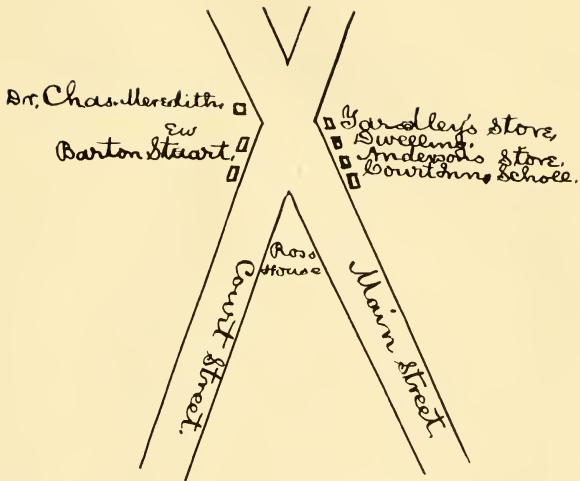 Dr. Chas. Meredith,
Ew
Barton Stuart,
Yardley's Store,
Dwelling.
Anderson's Store.
Court Inn, Scholl.
Ross
House
Court Street.
Main Street